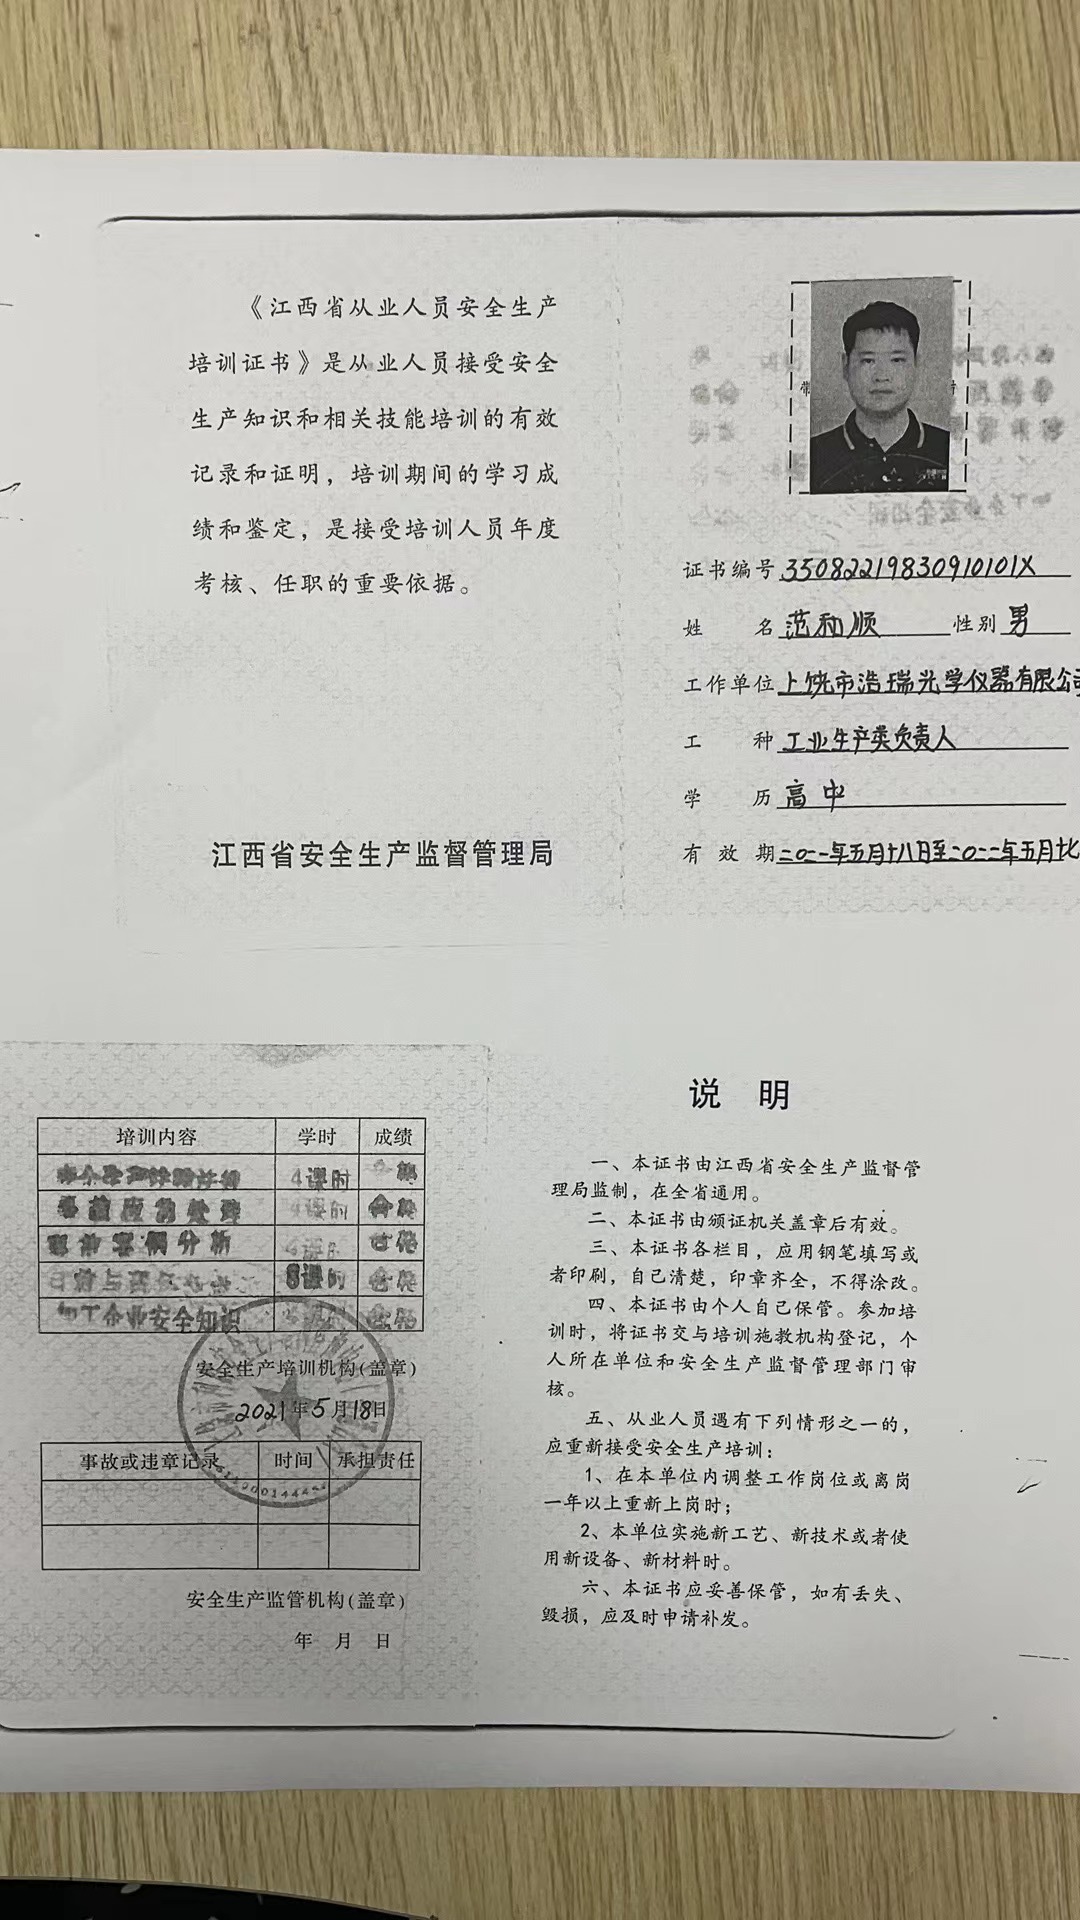 《江西省从业人员安全生产
培训证书》是从业人员接受安全
生产知识和相关技能培训的有效
记录和证明，培训期间的学习成
绩和鉴定，是接受培训人员年度
考核、任职的重要依据。
江西省安全生产监督管理局
证书编号 35082219830910101X
姓 名 范和顺 性别 男
工作单位 上饶市浩瑞光学仪器有限公司
工 种 工业生产类负责人
学 历 高中
有 效 期 二〇二一年五月十八日至二〇二二年五月
培训内容 学时 成绩
4课时
4课时 合格
案例分析 4课时
8课时
加工企业安全知识
安全生产培训机构(盖章)
2021年5月18日
事故或违章记录 时间 承担责任
安全生产监管机构(盖章)
年 月 日
说 明
一、本证书由江西省安全生产监督管
理局监制，在全省通用。
二、本证书由颁证机关盖章后有效。
三、本证书各栏目，应用钢笔填写或
者印刷，自己清楚，印章齐全，不得涂改。
四、本证书由个人自己保管。参加培
训时，将证书交与培训施教机构登记，个
人所在单位和安全生产监督管理部门审
核。
五、从业人员遇有下列情形之一的，
应重新接受安全生产培训：
1、在本单位内调整工作岗位或离岗
一年以上重新上岗时；
2、本单位实施新工艺、新技术或者使
用新设备、新材料时。
六、本证书应妥善保管，如有丢失、
毁损，应及时申请补发。